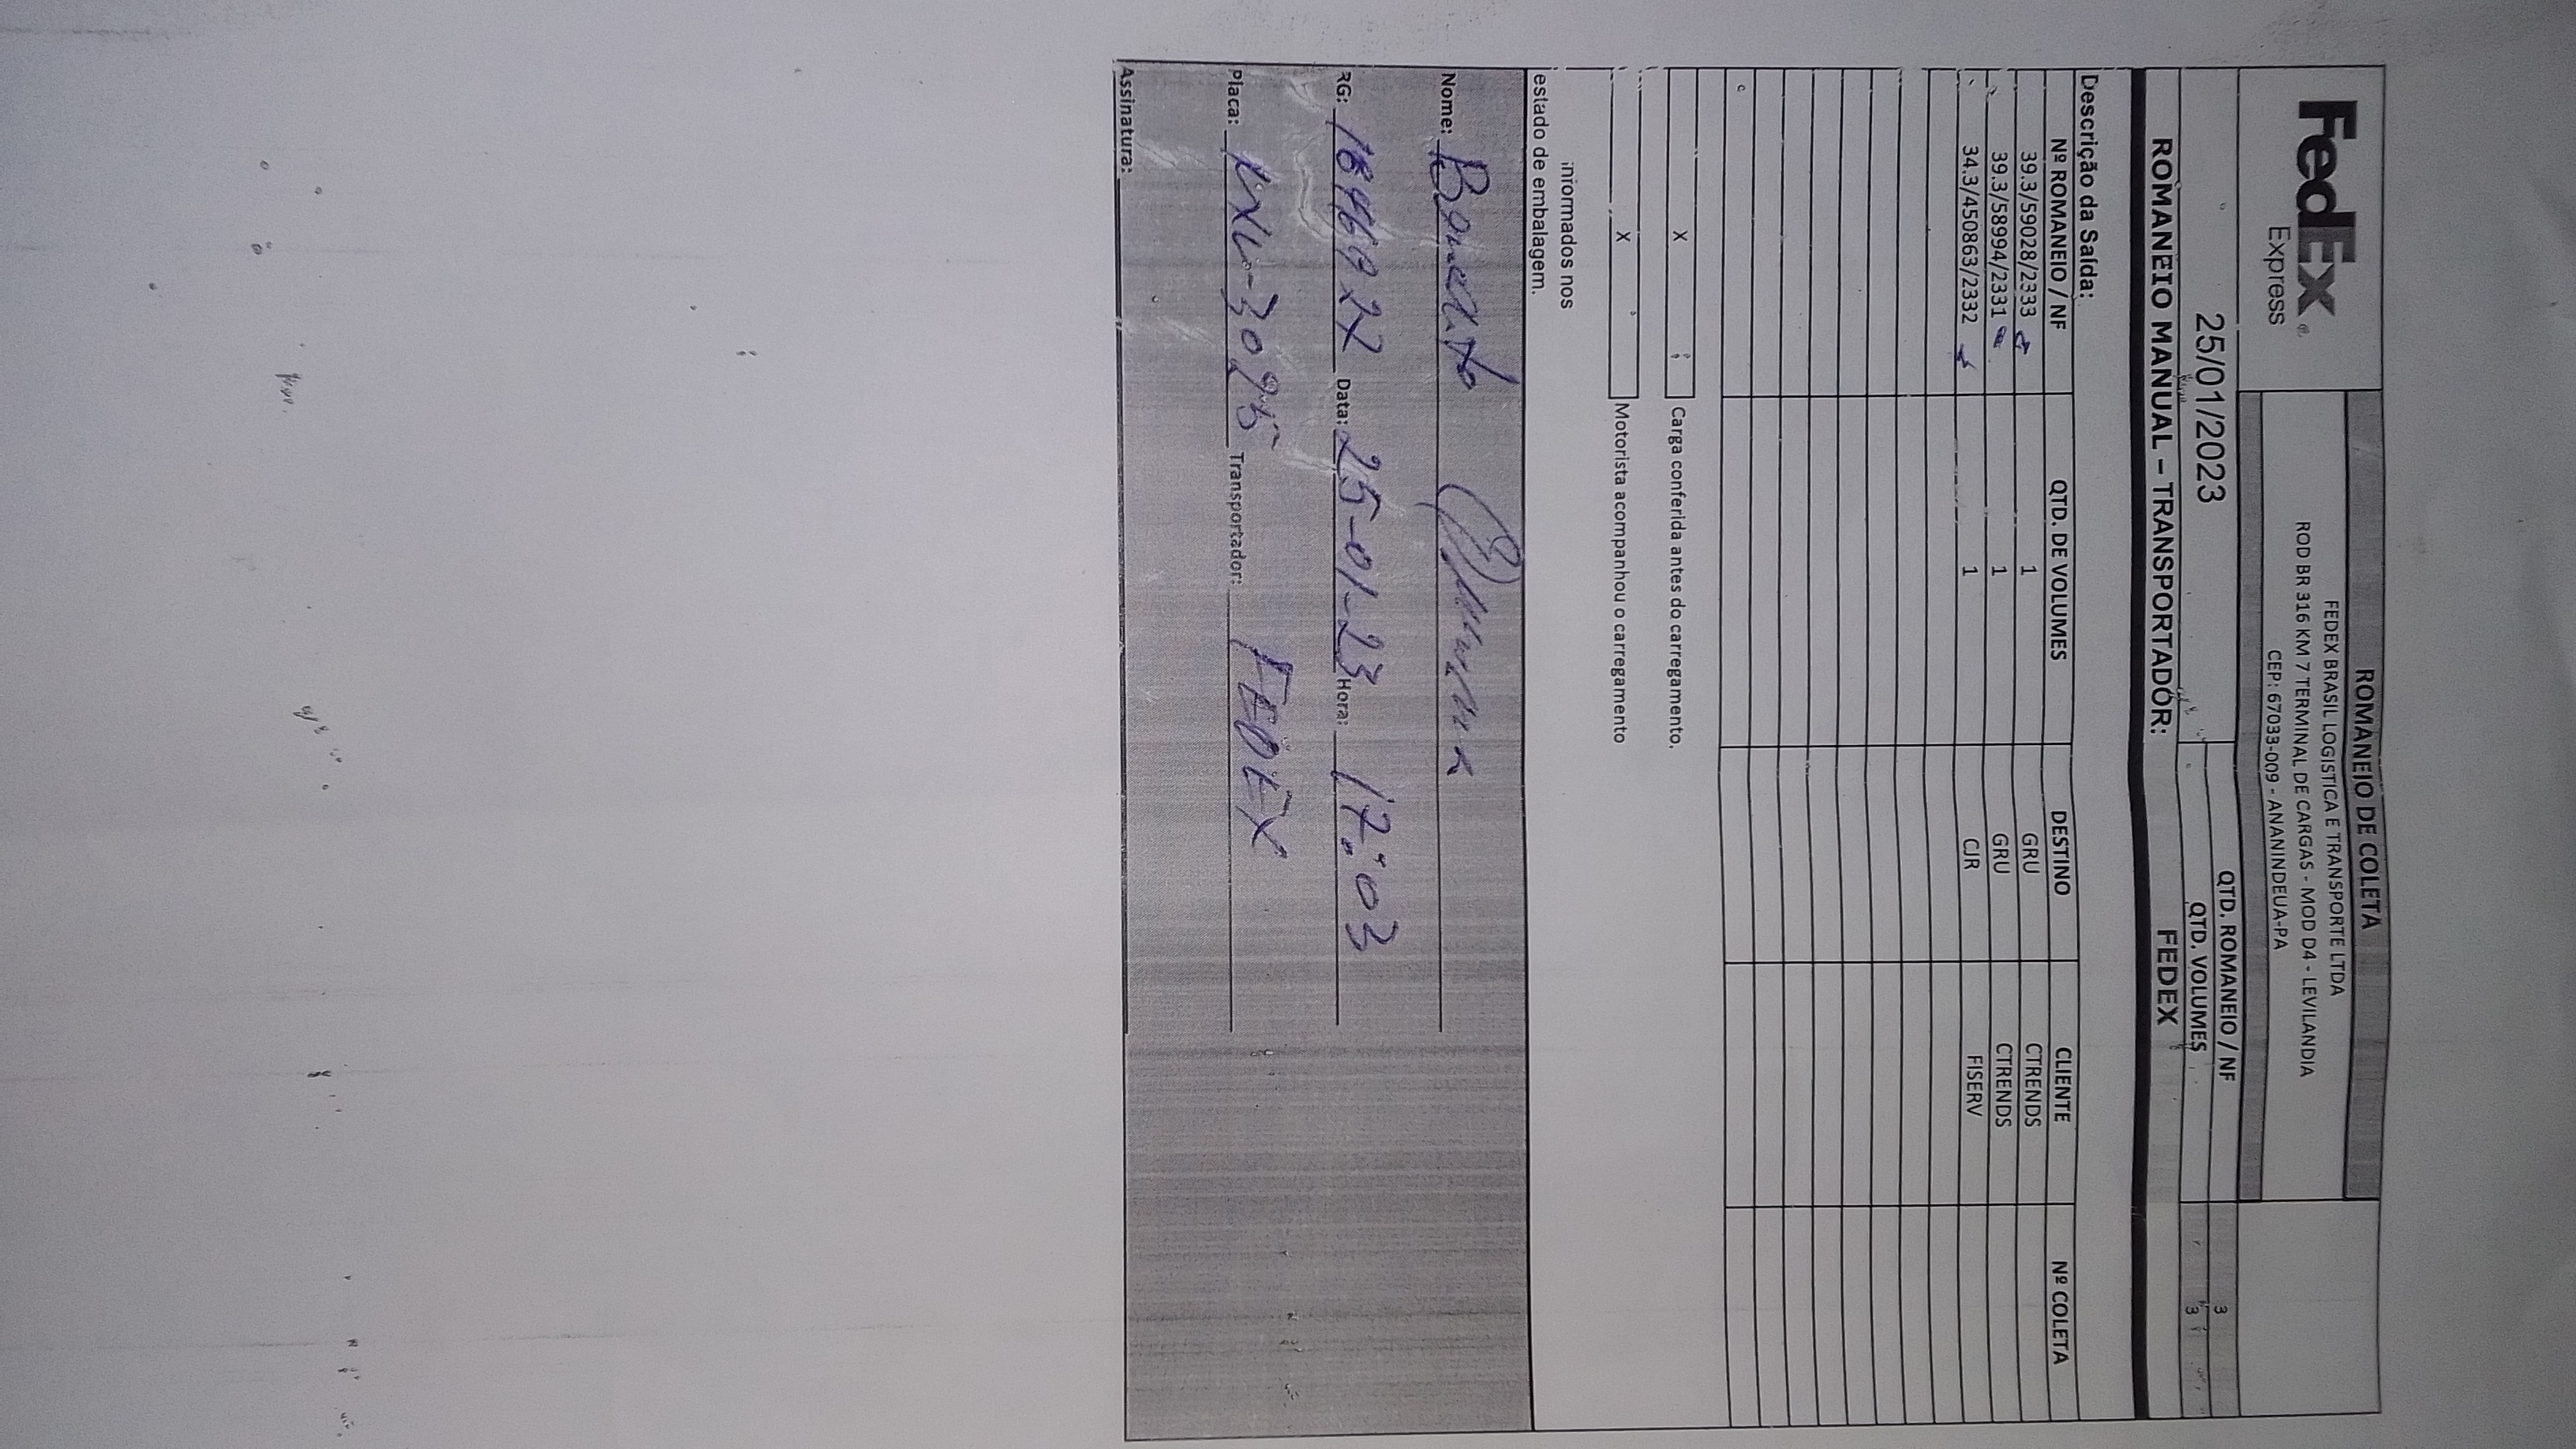 FedEx
Express
ROMANEIO DE COLETA
FEDEX BRASIL LOGISTICA E TRANSPORTE LTDA
ROD BR 316 KM 7 TERMINAL DE CARGAS - MOD D4 - LEVILANDIA
CEP: 67033-009 - ANANINDEUA-PA
25/01/2023
QTD. ROMANEIO / NF 3
QTD. VOLUMES 3
ROMANEIO MANUAL – TRANSPORTADOR: FEDEX
Descrição da Saída:
Nº ROMANEIO / NF QTD. DE VOLUMES DESTINO CLIENTE Nº COLETA
39.3/59028/2333 1 GRU CTRENDS
39.3/58994/2331 1 GRU CTRENDS
34.3/450863/2332 1 CJR FISERV
X Carga conferida antes do carregamento.
X Motorista acompanhou o carregamento
informados nos
estado de embalagem.
Nome:
RG: Data: 25-01-23 Hora: 17:03
Placa: Transportador: FEDEX
Assinatura: